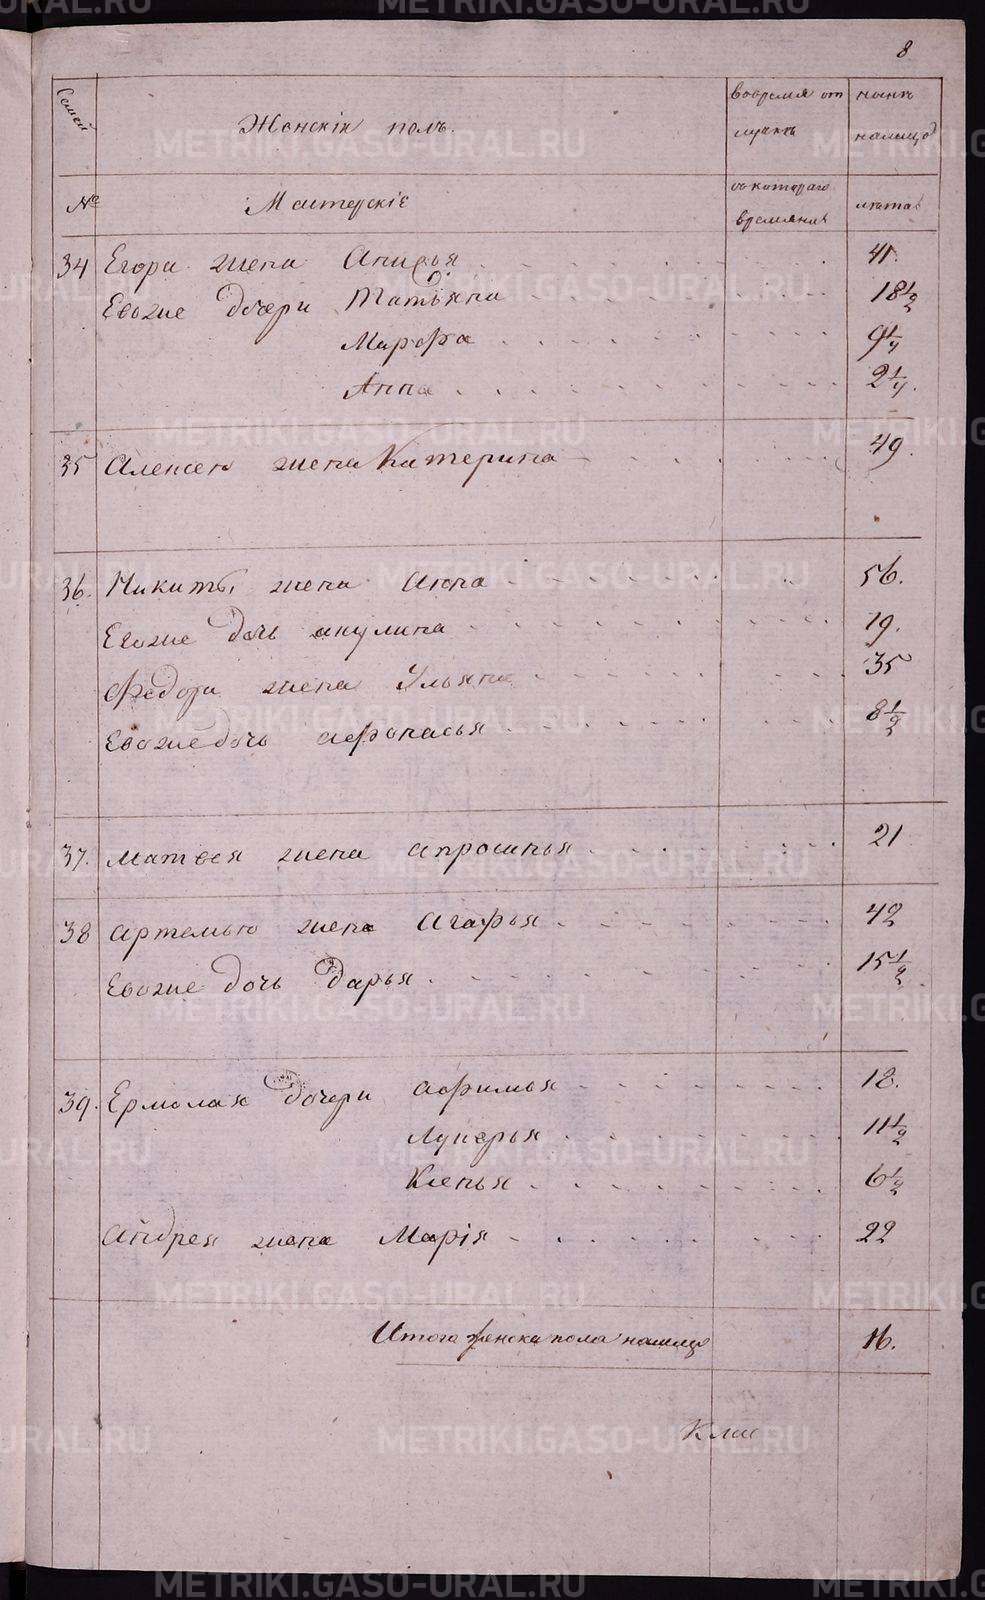 8
Семей Женскiй полъ. вовремя от нынѣ
лучкѣ налицо
№ Мастерскiе съ котораго лѣтав
времянив
34 Егора жена Анисья 41.
Евоже дочери Татьяна 18 1/2
Марфа 9 1/4
Анна 2 1/4.
35 Алексея жена Катерина 49.
36. Никиты жена Анна 56.
Евоже дочь акулина 19.
Федора жена Ульяна 35
Евоже дочь афонасья 8 1/2
37. Матвея жена апросинья 21
38 артемью жена Агафья 42
Евоже дочь Дарья 15 1/2
39. Ермолая дочери афимья 18.
Лукерья 11 1/2
Ксенья 6 1/2
Андрея жена Марiя 22
Итога женска пола налицо 16.
METRIKI.GASO-URAL.RU